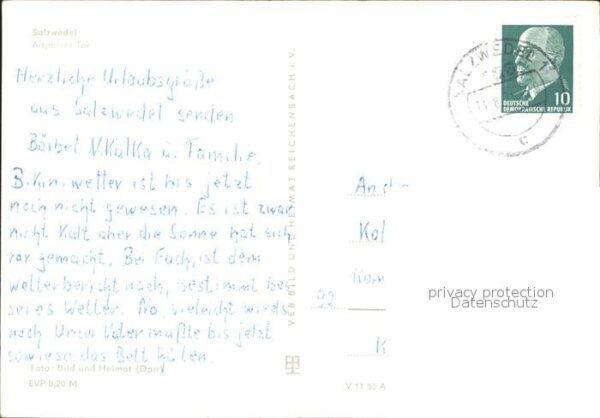 Salzwedel
Altperver Tor
Herzliche Urlaubsgrüße
aus Salzwedel senden
Bärbel V. Kulka u. Familie.
B.Kin. wetter ist bis jetzt
noch nicht gewesen. Es ist zwar
nicht Kalt aber die Sonne hat sich
rar gemacht. Bei Euch, ist dem
Wetterbericht nach, bestimmt bes
seres Wetter. Na, vieleicht wirds
noch. Unser Vater mußte bis jetzt
sowieso das Bett hüten.
Foto: Bild und Heimat (Dorr)
EVP 0,20 M
VEB BILD UND HEIMAT REICHENBACH i. V.
V 11 50 A
SALZWEDEL 1
c
DEUTSCHE
DEMOKRATISCHE REPUBLIK
10
An d
Kol
Kom
92
K
privacy protection
Datenschutz